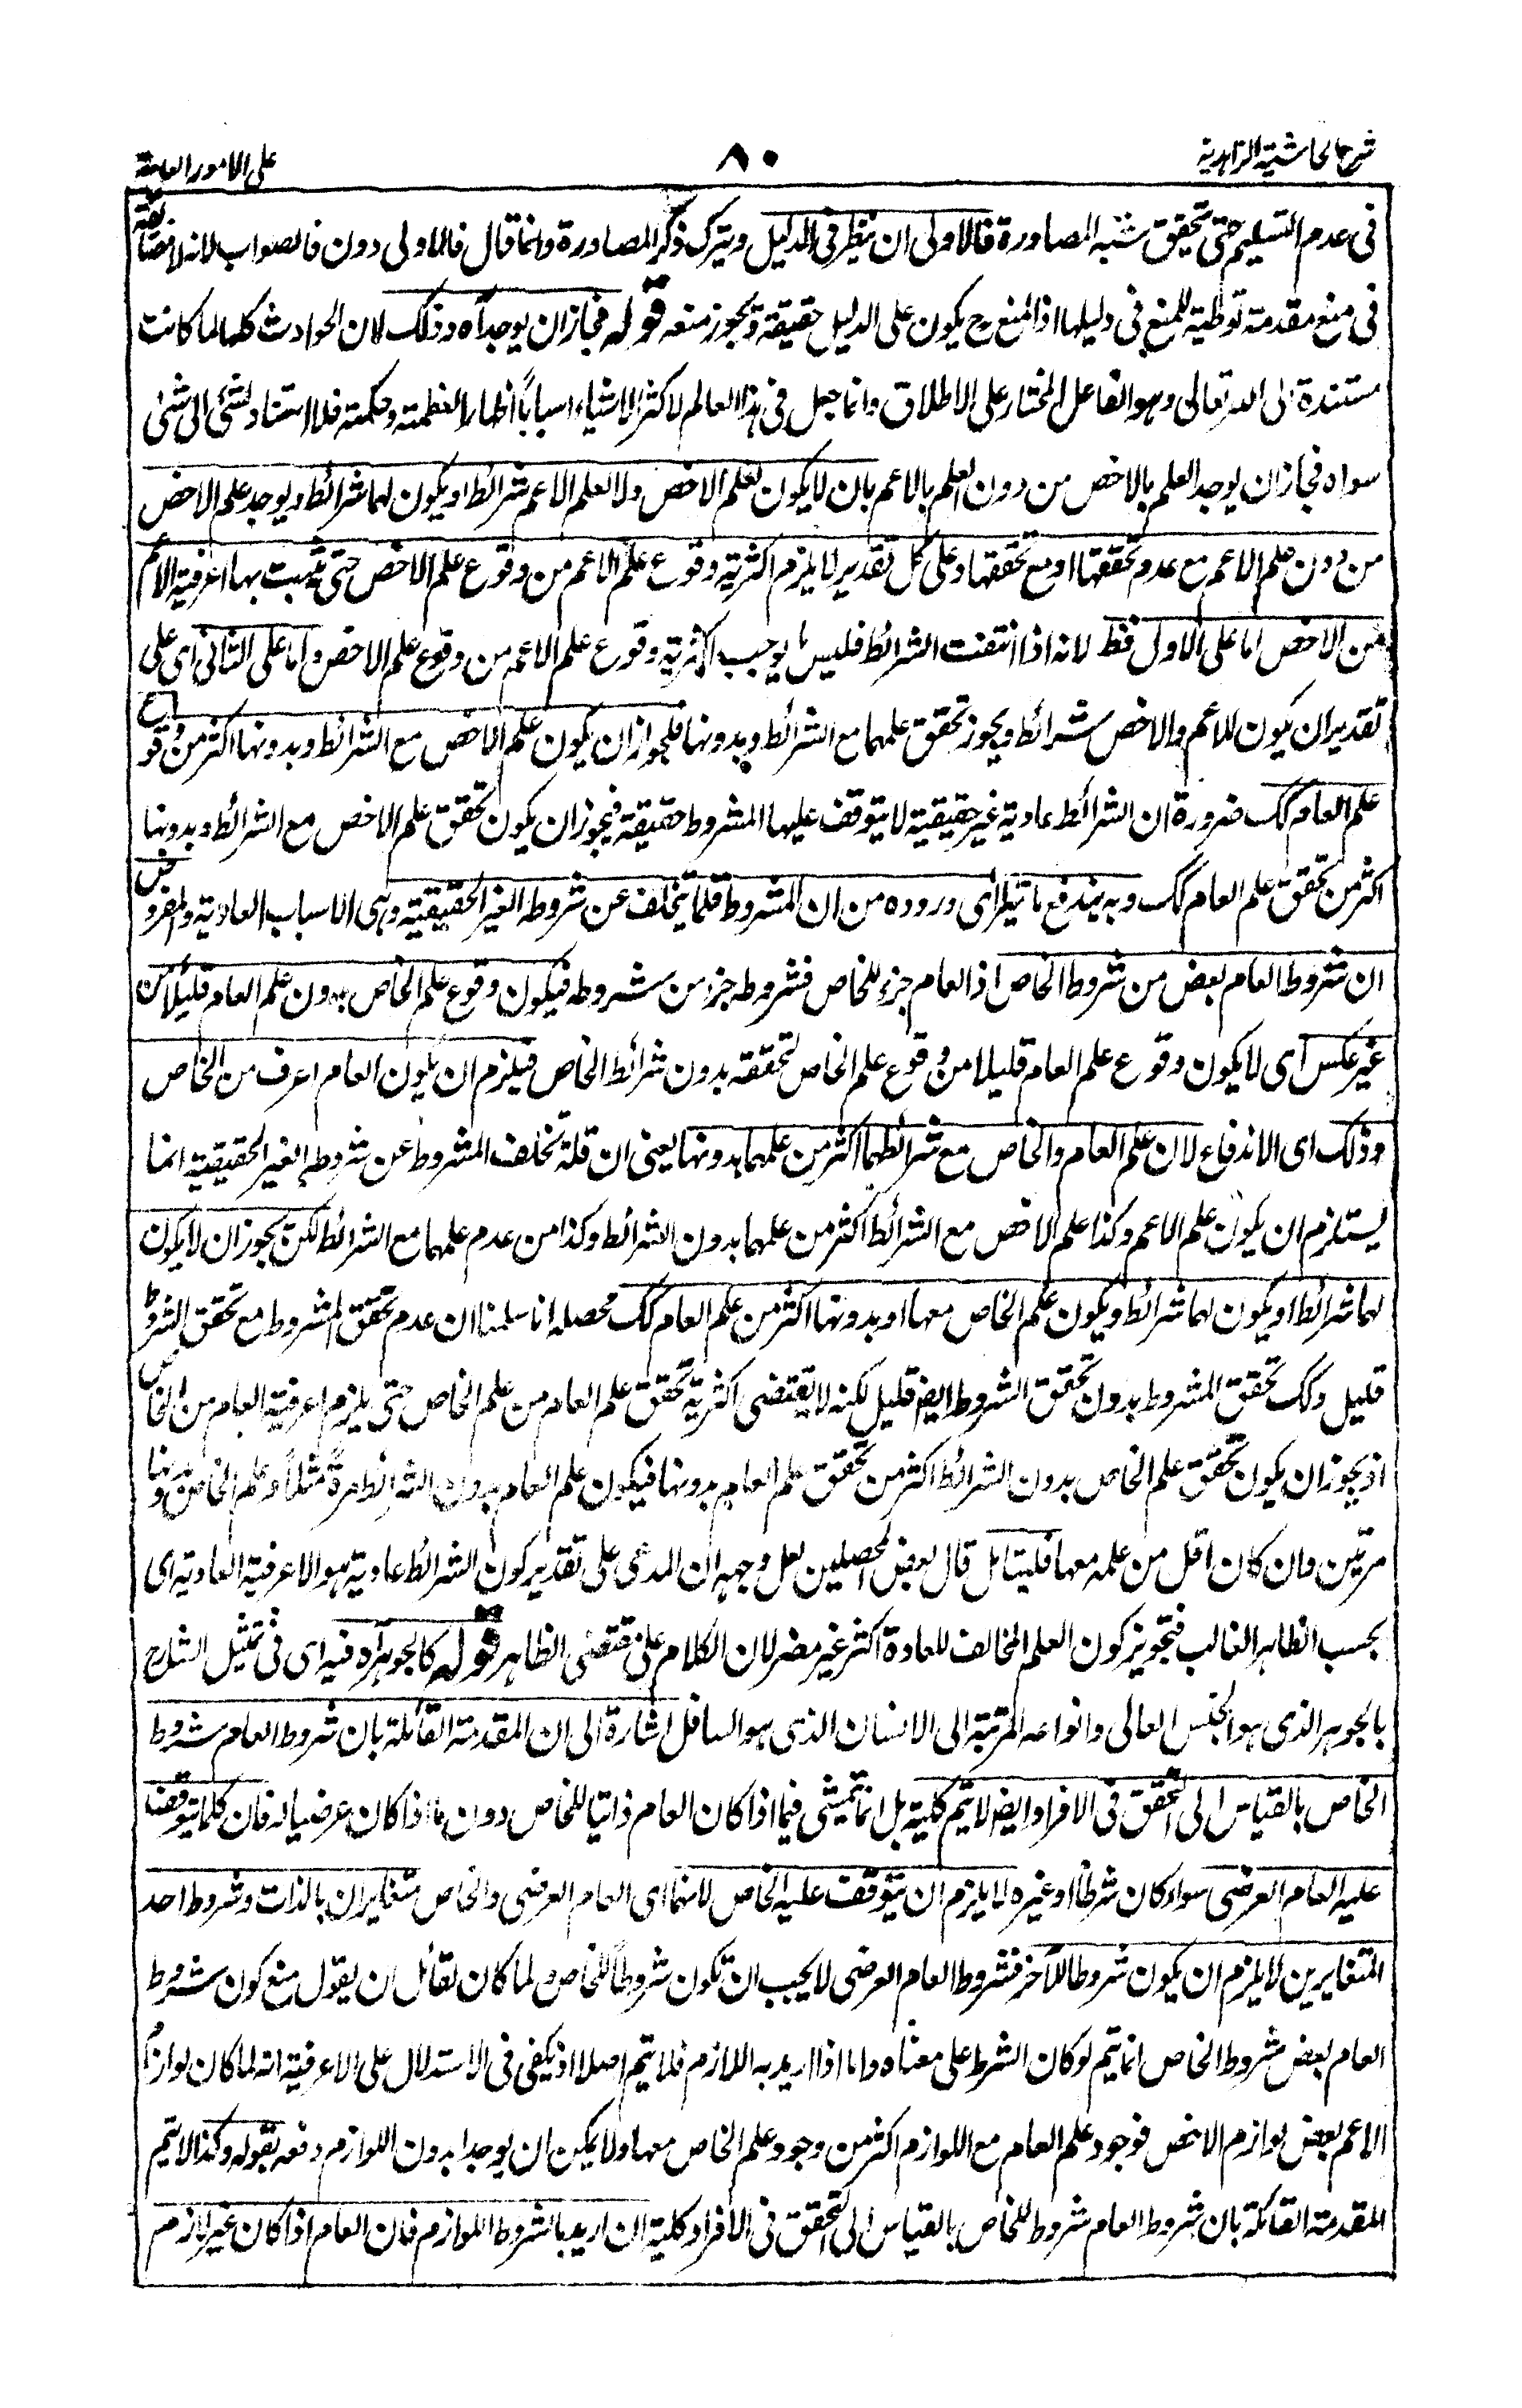 شرح الحاشیة الزاہدیة
٨٠
علی الامور العامة
فی عدم التسلیم حتی یتحقق شبہ المصادرة فالاولی ان ینظر فی الدلیل ویترک ذکر المصادرة وانما قال فالاولی دون فالصواب لانہ لا مضائقة
فی منع مقدمة توطیة للمنع فی دلیلہا اذ المنع ح یکون علی الدلیل حقیقة ویجوز منعہ قولہ فجاز ان یوجد اہ وذلک لان الحوادث کلہا لما کانت
مستندة الی اللہ تعالی وہو الفاعل المختار علی الاطلاق وانما جعل فی ہذا العالم لاکثر الاشیاء اسباباً اظہارا لعظمتہ وحکمتہ فلا استناد لشئ الی شئ
سواہ فجاز ان یوجد العلم بالاخص من دون العلم بالاعم بان لا یکون لعلم الاخص ولا لعلم الاعم شرائط او یکون لہما شرائط ویوجد علم الاخص
من دون علم الاعم مع عدم تحققہا او مع تحققہا وعلی کل تقدیر لا یلزم اکثریة وقوع علم الاعم من وقوع علم الاخص حتی یثبت بہا اعرفیة الاعم
من الاخص اما علی الاول فقط لانہ اذا انتفت الشرائط فلیس ما یوجب اکثریة وقوع علم الاعم من وقوع علم الاخص واما علی الثانی ای علی
تقدیر ان یکون للاعم والاخص شرائط ویجوز تحقق علمہما مع الشرائط وبدونہا فلجواز ان یکون علم الاخص مع الشرائط وبدونہا اکثر من وقوع
علم العام کک ضرورة ان الشرائط عادیة غیر حقیقیة لا یتوقف علیہا المشروط حقیقة فیجوز ان یکون تحقق علم الاخص مع الشرائط وبدونہا
اکثر من تحقق علم العام کک وبہ یندفع ما یتراأی ورودہ من ان المشروط قلما یتخلف عن شروطہ الغیر الحقیقیة وہی الاسباب العادیة والمفروض
ان شروط العام بعض من شروط الخاص اذ العام جزء للخاص فشروطہ جزء من شروطہ فیکون وقوع علم الخاص بدون علم العام قلیلاً من
غیر عکس ای لا یکون وقوع علم العام قلیلا من وقوع علم الخاص لتحققہ بدون شرائط الخاص فیلزم ان یکون العام اعرف من الخاص
وذلک ای الاندفاع لان علم العام والخاص مع شرائطہما اکثر من علمہما بدونہا یعنی ان قلة تخلف المشروط عن شروطہ الغیر الحقیقیة انما
یستلزم ان یکون علم الاعم وکذا علم الاخص مع الشرائط اکثر من علمہما بدون الشرائط وکذا من عدم علمہما مع الشرائط لکن یجوز ان لا یکون
لہما شرائط او یکون لہما شرائط ویکون علم الخاص معہا او بدونہا اکثر من علم العام کک محصلہ انا سلمنا ان عدم تحقق المشروط مع تحقق الشروط
قلیل وکک تحقق المشروط بدون تحقق الشروط ایضا قلیل لکنہ لا یقتضی اکثریة تحقق علم العام من علم الخاص حتی یلزم اعرفیة العام من الخاص
اذ یجوز ان یکون تحقق علم الخاص بدون الشرائط اکثر من تحقق علم العام بدونہا فیکون علم العام بدون الشرائط مرةً مثلاً وعلم الخاص بدونہا
مرتین وان کان اقل من علمہ معہا فلیتامل قال بعض المحصلین لعل وجہہ ان المدعی علی تقدیر کون الشرائط عادیة ہو الاعرفیة العادیة ای
بحسب الظاہر الغالب فتجویز کون العلم المخالف للعادة اکثر غیر مضر لان الکلام علی مقتضی الظاہر قولہ کالجوہر اہ فیہ ای فی تمثیل الشارح
بالجوہر الذی ہو الجنس العالی وانواعہ المرتبة الی الانسان الذی ہو السافل اشارة الی ان المقدمة القائلة بان شروط العام شروط
الخاص بالقیاس الی التحقق فی الافراد ایضا لا یتم کلیة بل انما یتمشی فیما اذا کان العام ذاتیا للخاص دون ما اذا کان عرضیا لہ فان کلما یتوقف
علیہ العام العرضی سواء کان شرطاً او غیرہ لا یلزم ان یتوقف علیہ الخاص لانہما ای العام العرضی والخاص متغایران بالذات وشروط احد
المتغایرین لا یلزم ان یکون شروطا للآخر فشروط العام العرضی لا یجب ان تکون شروطاً للخاص ولما کان لقائل ان یقول منع کون شروط
العام بعض شروط الخاص انما یتم لو کان الشرط علی معناہ واما اذا ارید بہ اللازم فلا یتم اصلا اذ یکفی فی الاستدلال علی الاعرفیة انہ لما کان لوازم
الاعم بعض لوازم الاخص فوجود علم العام مع اللوازم اکثر من وجود علم الخاص معہا ولا یمکن ان یوجدا بدون اللوازم دفعہ بقولہ وکذا لا یتم
المقدمة القائلة بان شروط العام شروط للخاص بالقیاس الی التحقق فی الافراد کلیة ان ارید بالشروط اللوازم فان العام اذا کان غیر لازم